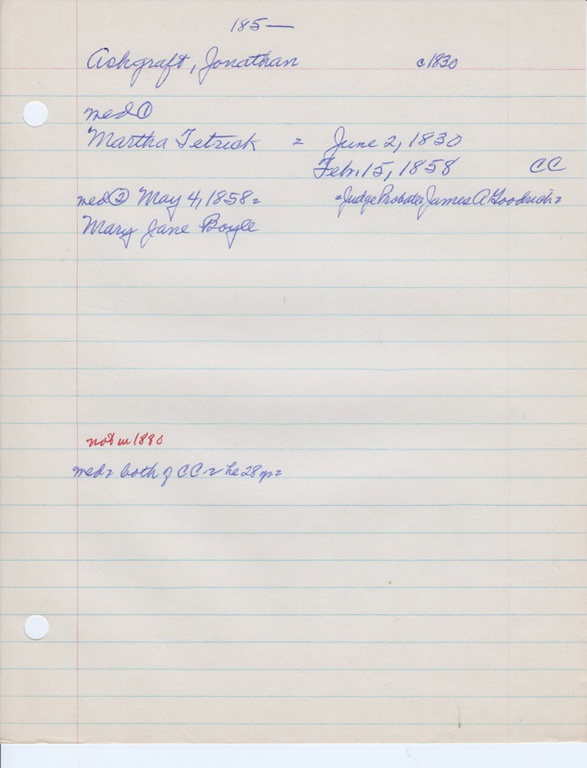 185—
Ashgraft, Jonathan c1830
med ①
Martha Tetrick = June 2, 1830
Feb. 15, 1858 CC
med ② May 4, 1858 = =Judge Probate James A Goodrich=
Mary Jane Boyle
not in 1880
med = both of CC = he 28 yr =